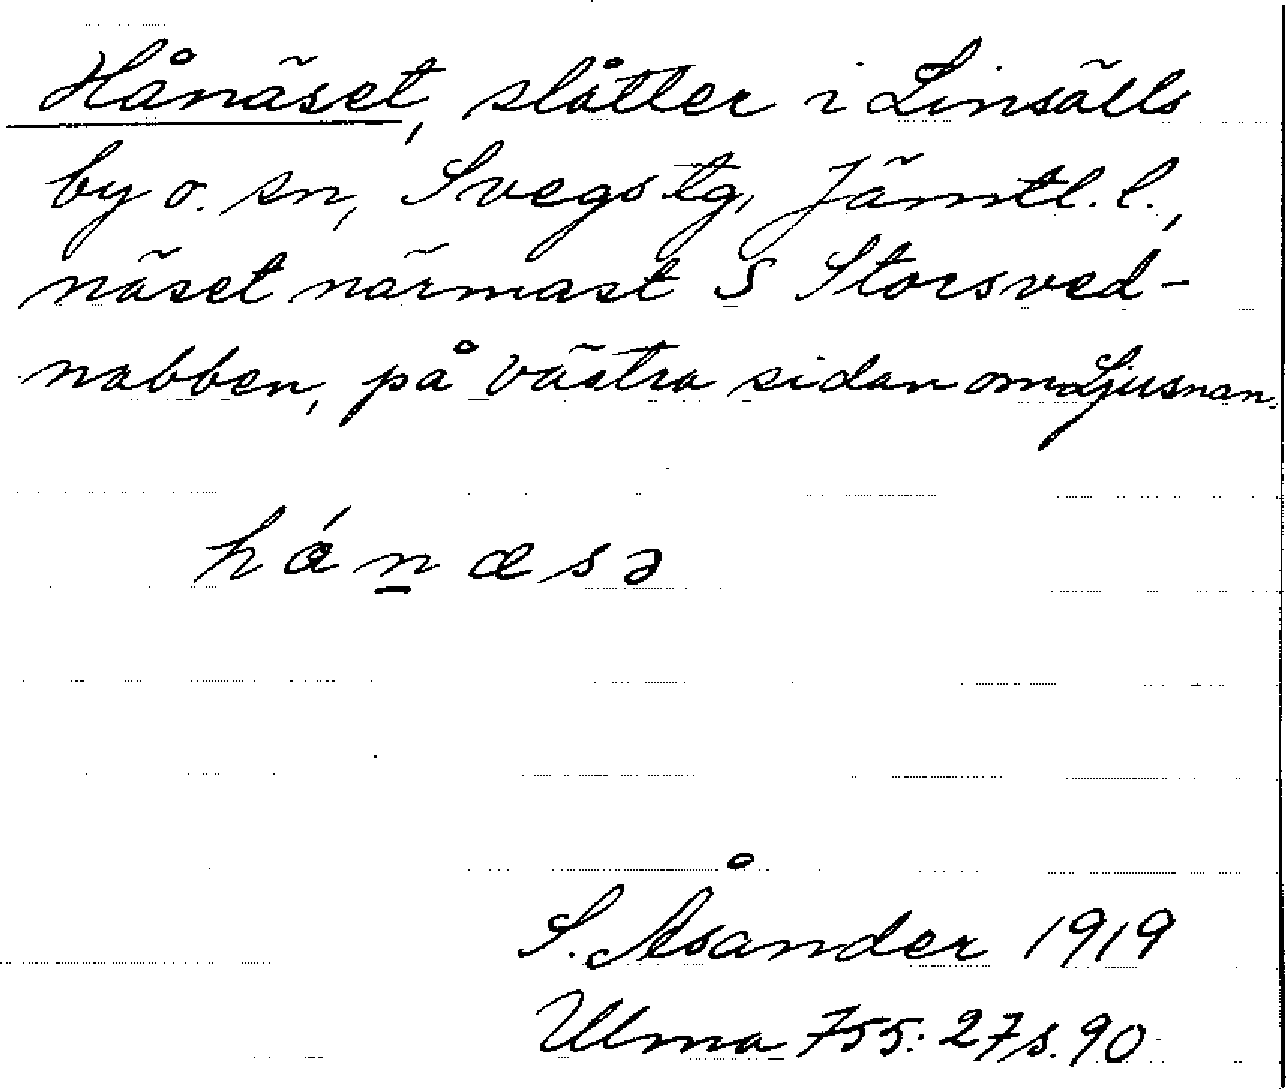 Hånäset, slåtter i Linsälls
by o. sn, Svegs tg, Jämtl. l.,
näset närmast S Storsved-
nabben, på västra sidan om Ljusnan.
hánæsə
S. Åsander 1919
Ulma 755:27 s. 90